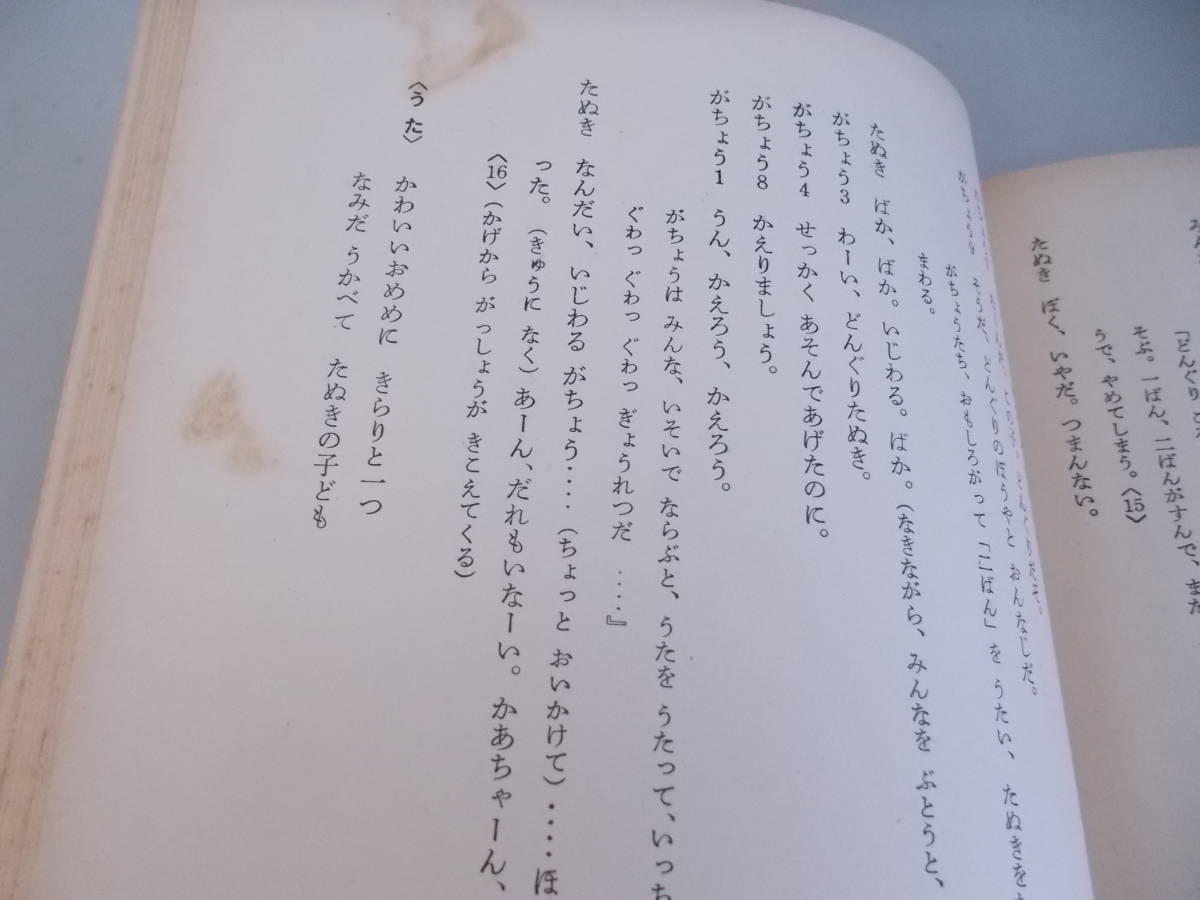 「どんぐり ころ
そぶ。一ばん、二ばんがすんで、また
うで、やめてしまう。〈15〉
たぬき ぼく、いやだ。つまんない。
がちょう9 そうだ、どんぐりのぼうやと おんなじだ。
がちょうたち、おもしろがって「二ばん」を うたい、たぬきを
まわる。
たぬき ばか、ばか。いじわる。ばか。(なきながら、みんなを ぶとうと、
がちょう3 わーい、どんぐりたぬき。
がちょう4 せっかく あそんであげたのに。
がちょう8 かえりましょう。
がちょう1 うん、かえろう、かえろう。
がちょうは みんな、いそいで ならぶと、うたを うたって、いっち
ぐわっ ぐわっ ぐわっ ぎょうれつだ ‥‥』
たぬき なんだい、いじわる がちょう‥‥(ちょっと おいかけて)‥‥ほ
った。(きゅうに なく)あーん、だれもいなーい。かあちゃーん、
〈16〉(かげから がっしょうが きこえてくる)
〈うた〉 かわいいおめめに きらりと一つ
なみだ うかべて たぬきの子ども